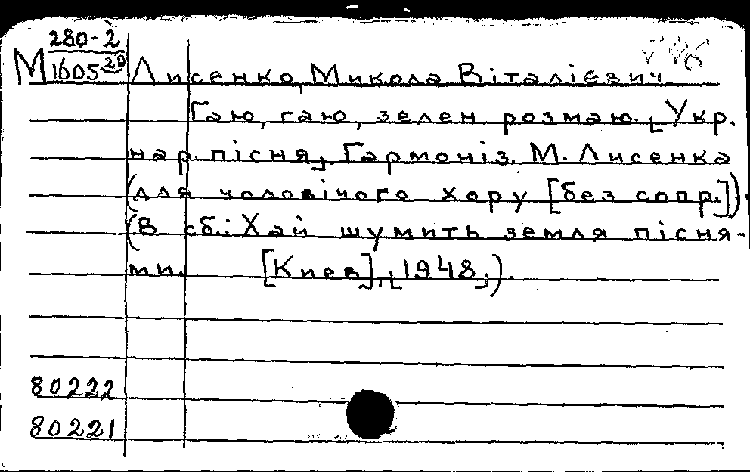 280-2
М 1605-29 Лисенко, Микола Віталієвич.
Гаю, гаю, зелен розмаю. [Укр.
нар. пісня]. Гармоніз. М. Лисенка
(для чоловічого хору [без сопр.]).
(В сб.: Хай шумить земля пісня-
ми. [Киев], [1948]).
80222
80221